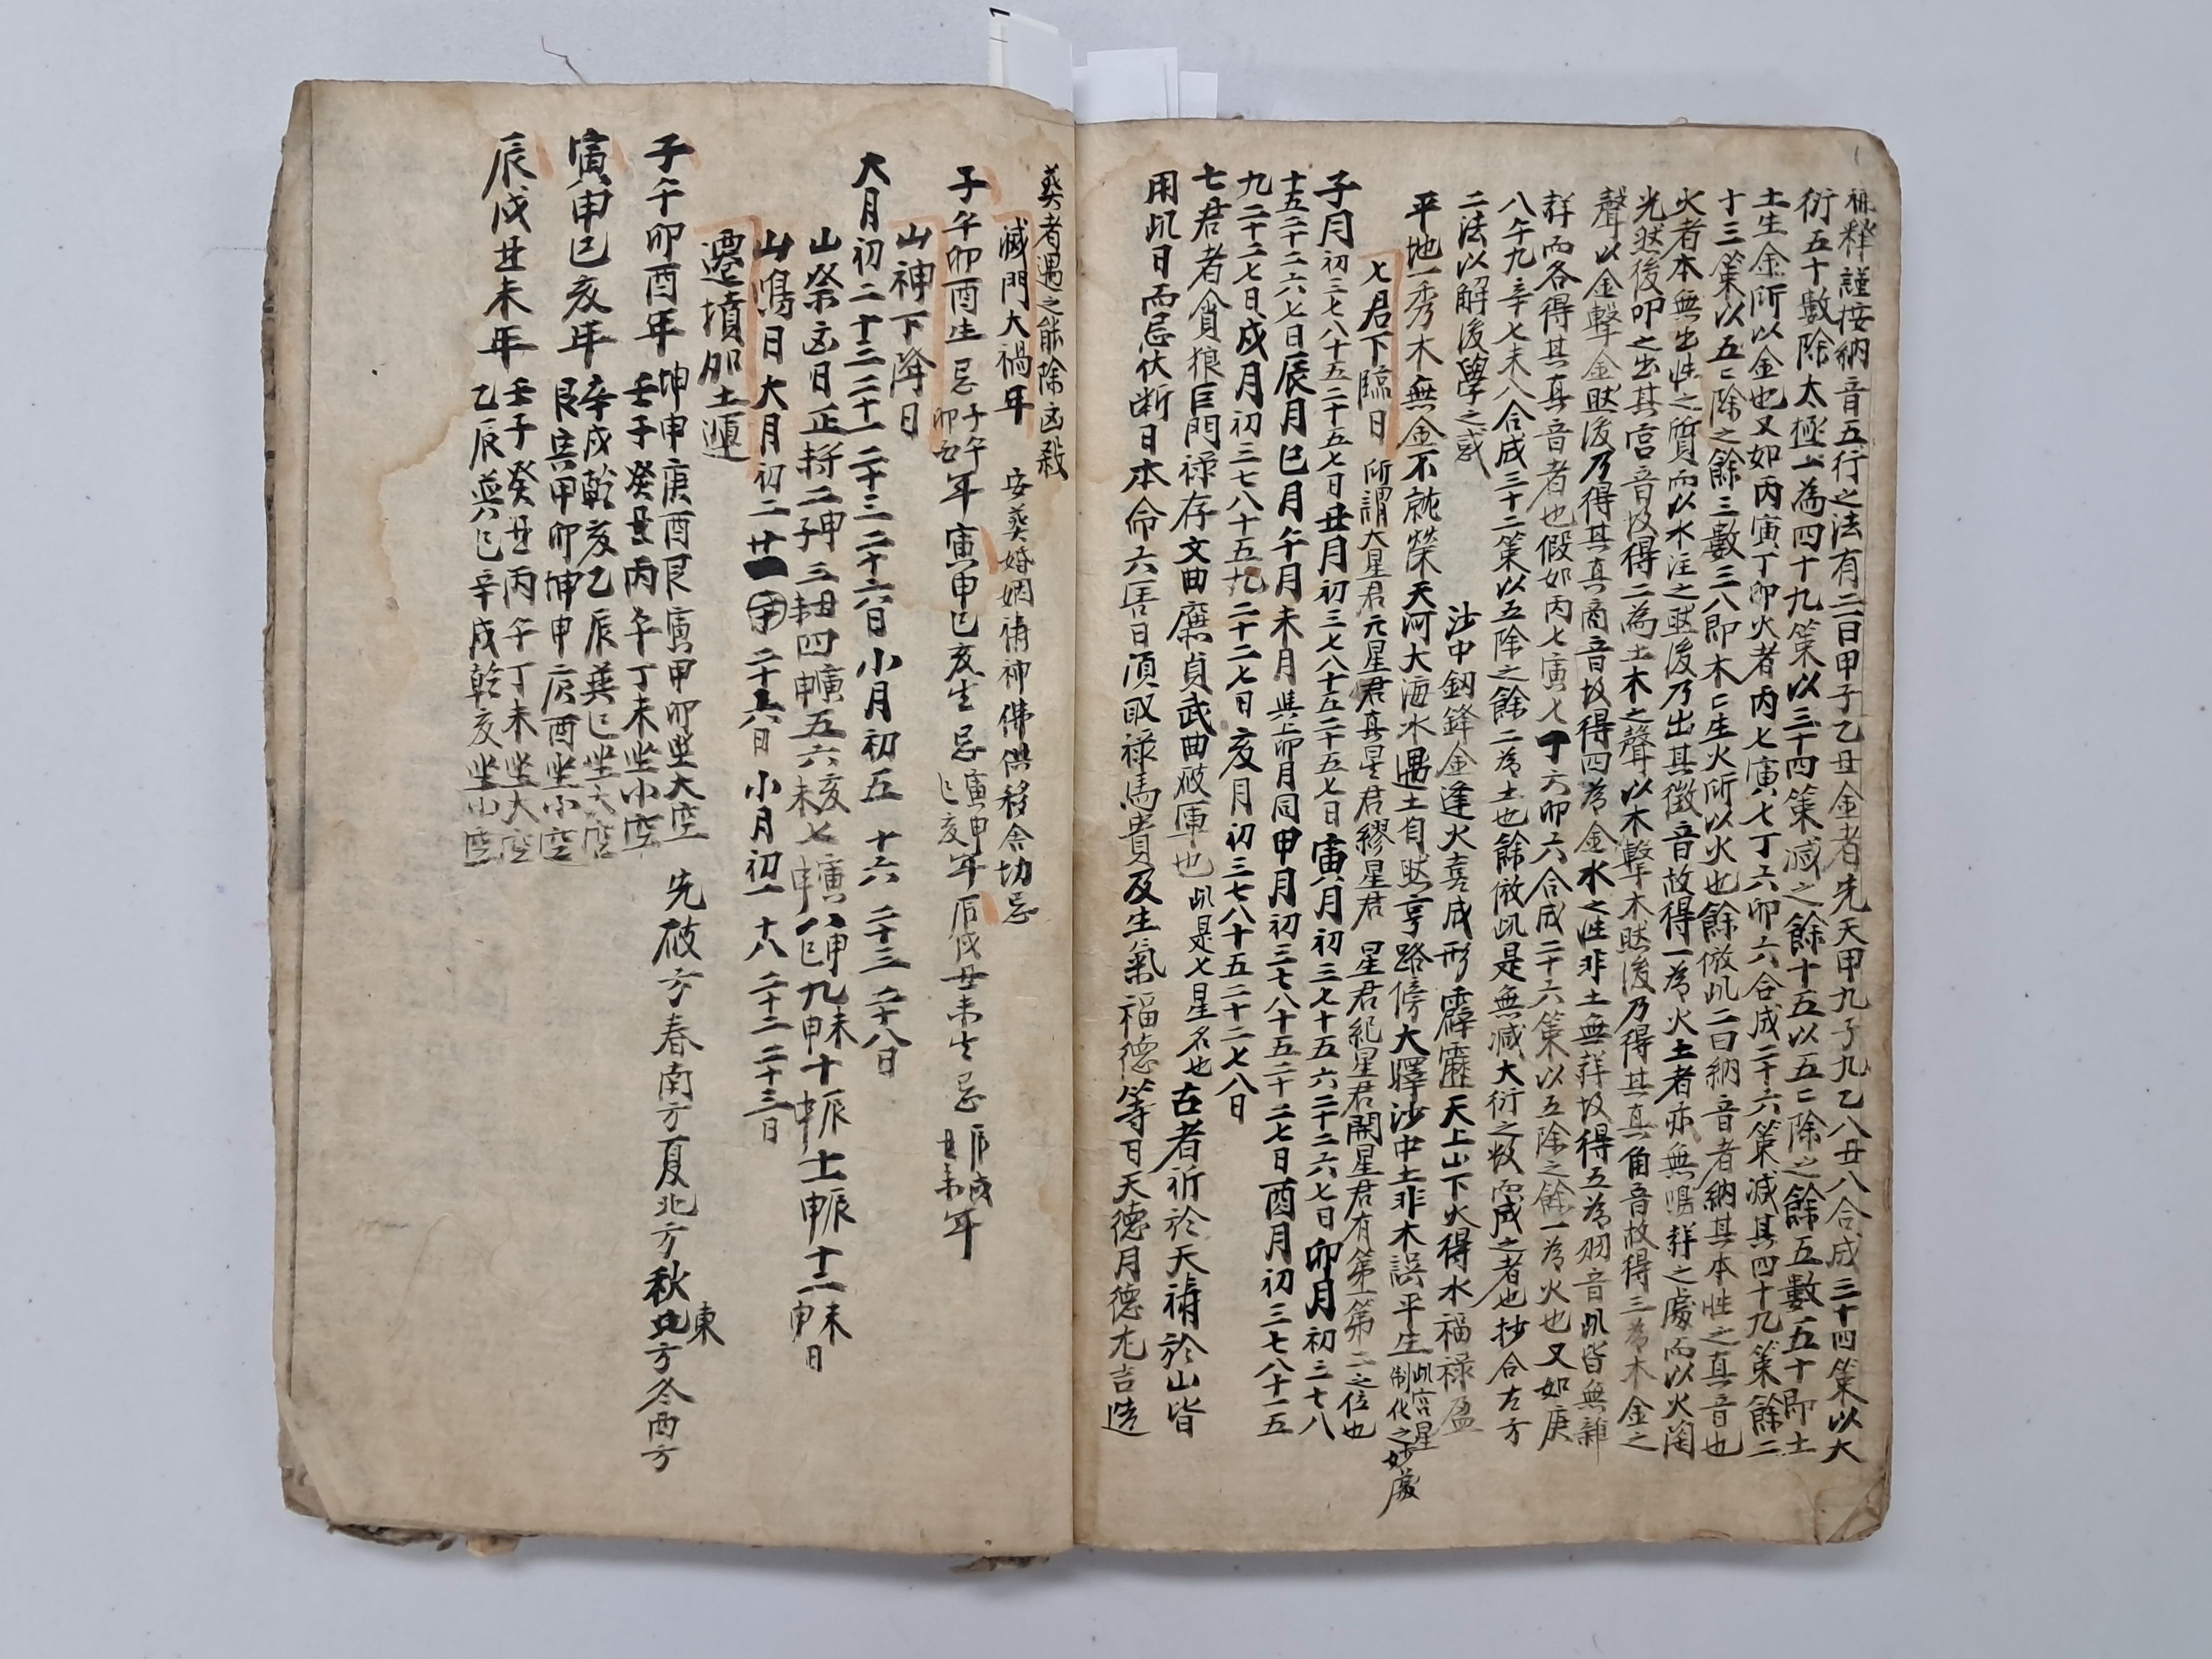 補釋謹按納音五行之法有二一曰甲子乙丑金者先天甲九子九乙八丑八合成三十四策以大
衍五十數除太極一爲四十九策以三十四策減之餘十五以五〻除之餘五數五十卽土
土生金所以金也又如丙寅丁卯火者丙七寅七丁六卯六合成二十六策減其四十九策餘二
十三策以五〻除之餘三數三八卽木〻生火所以火也餘倣此二曰納音者納其本性之眞音也
火者本無出性之質而以水注之然後乃出其徵音故得一爲火土者亦無鳴群之處而以火陶
光然後叩之出其宮音故得二爲土木之聲以木擊木然後乃得其眞角音故得三爲木金之
聲以金擊金然後乃得其眞商音故得四爲金水之性非土無群故得五爲羽音此皆無雜
群而各得其眞音者也假如丙七寅七丁六卯六合成二十六策以五除之餘一爲火也又如庚
八午九辛七未八合成三十二策以五除之餘二爲土也餘倣此是無減大衍之數而成之者也抄合左方
二法以解後學之惑
沙中釼鋒金逢火喜成形 霹靂天上山下火得水福祿盈
平地一秀木無金不就榮 天河大海水遇土自然亨 路傍大驛沙中土非木誤平生 此官星制化之妙處
七君下臨日 所謂大星君元星君眞星君繆星君 星君紀星君開星君有第一第二之位也
子月初三七八十五二十五七日丑月初三七八十五二十五七日寅月初三七十五六二十二六七日卯月初三七八
十五二十二六七日辰月巳月午月未月與上卯月同申月初三七八十五二十二七日酉月初三七八十五
九二十二七日戌月初三七八十五九二十二七日亥月初三七八十五二十二七八日
七君者貪狼巨門祿存文曲廉貞武曲破軍也 此是七星名也 古者祈於天禱於山皆
用此日而忌伏斷日本命六害日須取祿馬貴及生氣福德等日天德月德尤吉造
葬者遇之能除凶殺
滅門大禍年 安葬婚姻禱神佛供移舍切忌
子午卯酉生 忌 子午卯酉年 寅申巳亥生 忌 寅申巳亥年 辰戌丑未生 忌 辰戌丑未年
山神下降日
大月初二十二二十一二十三二十六日小月初五 十六 二十三 二十八日
山祭凶日正 二 三 四 五 六 七 八 九 十 十一 十二 日
山鳴日大月初二廿一 二十六日 小月初一 十八 二十二 二十三日
遷墳加土運
子午卯酉年 坤申庚酉艮寅甲卯坐大空 壬子癸丑丙午丁未坐小空 先破方春南方夏北方秋東方冬西方
寅申巳亥年 辛戌乾亥乙辰巽巳坐大空 艮寅甲卯坤申庚酉坐小空
辰戌丑未年 壬子癸丑丙午丁未坐大空 乙辰巽巳辛戌乾亥坐小空